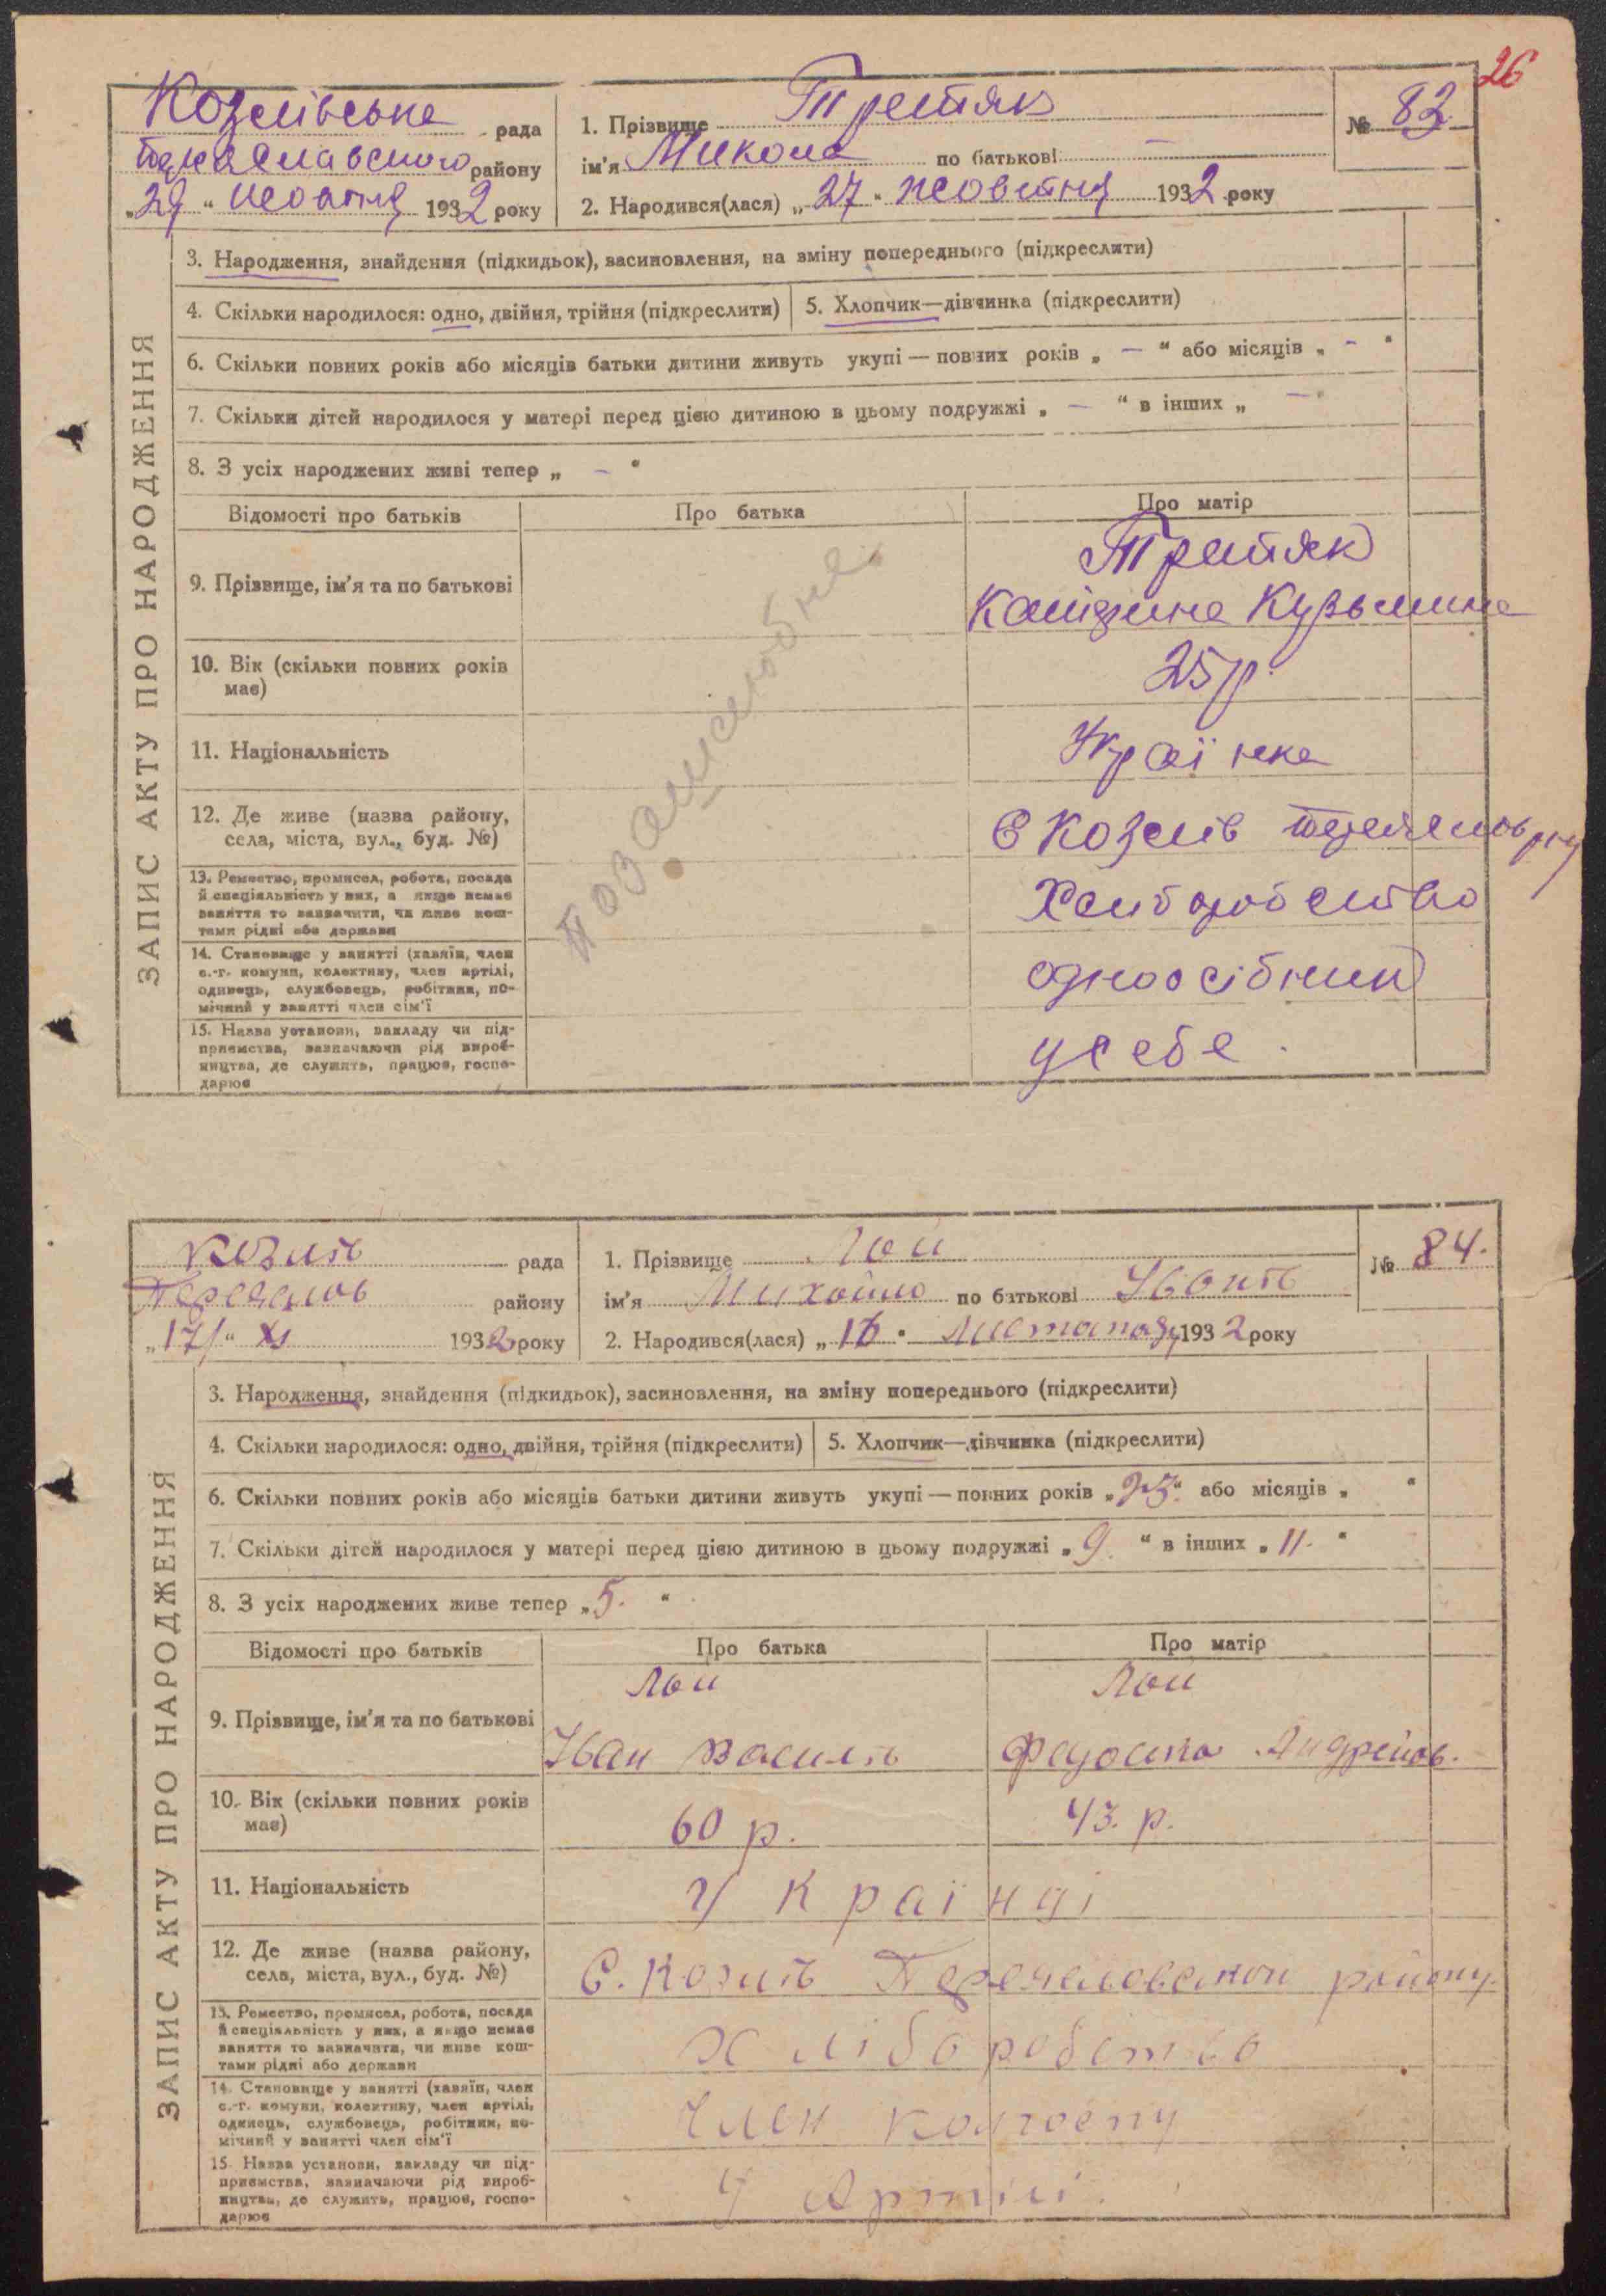 26
Козлівська рада
Переяславського району
„29“ жовтня 1932 року
1. Прізвище Третяк
№ 83
ім'я Микола по батькові —
2. Народився(лася) „27“ жовтня 1932 року
ЗАПИС АКТУ ПРО НАРОДЖЕННЯ
3. Народження, знайдення (підкидьок), засиновлення, на зміну попереднього (підкреслити)
4. Скільки народилося: одно, двійня, трійня (підкреслити) 5. Хлопчик—дівчинка (підкреслити)
6. Скільки повних років або місяців батьки дитини живуть укупі — повних років „ — “ або місяців „ - “
7. Скільки дітей народилося у матері перед цією дитиною в цьому подружжі „ — “ в інших „ — “
8. З усіх народжених живі тепер „ — “
Відомості про батьків Про батька Про матір
9. Прізвище, ім'я та по батькові
Третяк
Кузьмина
10. Вік (скільки повних років
має)
25 р.
11. Національність
Українка
12. Де живе (назва району,
села, міста, вул., буд. №)
С Козлів
13. Ремество, промисел, робота, посада
й спеціяльність у них, а якщо немає
заняття то зазначити, чи живе кош-
тами рідні або держави
Хліборобство
14. Становище у занятті (хазяїн, член
с.-г. комуни, колективу, член артілі,
одинець, службовець, робітник, по-
мічний у занятті член сім'ї
одноосібник
15. Назва установи, закладу чи під-
приємства, зазначаючи рід вироб-
ництва, де служить, працює, госпо-
дарює
у себе.
позашлюбне
Козлів рада
Переяслов району
„17“ XI 1932 року
1. Прізвище Лой
№ 84.
ім'я Михайло по батькові Іванів
2. Народився(лася) „16“ Листопаду 1932 року
ЗАПИС АКТУ ПРО НАРОДЖЕННЯ
3. Народження, знайдення (підкидьок), засиновлення, на зміну попереднього (підкреслити)
4. Скільки народилося: одно, двійня, трійня (підкреслити) 5. Хлопчик—дівчинка (підкреслити)
6. Скільки повних років або місяців батьки дитини живуть укупі — повних років „23“ або місяців „ “
7. Скільки дітей народилося у матері перед цією дитиною в цьому подружжі „9.“ в інших „11.“
8. З усіх народжених живе тепер „5.“
Відомості про батьків Про батька Про матір
9. Прізвище, ім'я та по батькові
Лой Лой
Іван Василів Федоська Андрейов.
10. Вік (скільки повних років
має)
60 р. 43. р.
11. Національність
Українці
12. Де живе (назва району,
села, міста, вул., буд. №)
С. Козлів району
13. Ремество, промисел, робота, посада
й спеціяльність у них, а якщо немає
заняття то зазначити, чи живе кош-
тами рідні або держави
хліборобство
14. Становище у занятті (хазяїн, член
с.-г. комуни, колективу, член артілі,
одинець, службовець, робітник, по-
мічний у занятті член сім'ї
Член колгоспу
15. Назва установи, закладу чи під-
приємства, зазначаючи рід вироб-
ництва, де служить, працює, госпо-
дарює
У Артілі.